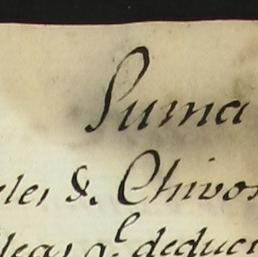 Suma
les &. Chivos
leas q.e deduci